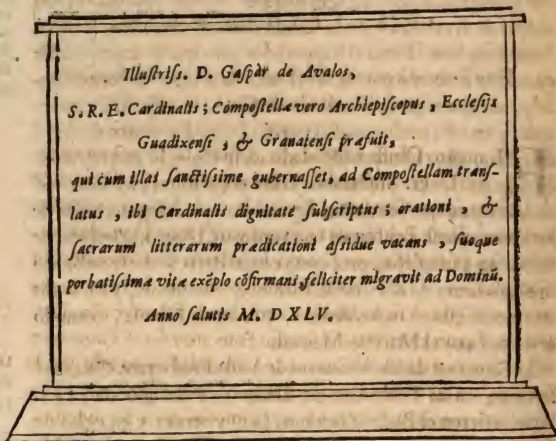 Illuſtriſs. D. Gaſpàr de Avalos,
S. R. E. Cardinalis; Compoſtellæ vero Archiepiſcopus, Eccleſijs
Guadixenſi, & Granatenſi præfuit,
qui cum illas ſanctiſsime gubernaſſet, ad Compoſtellam tranſ-
latus, ibi Cardinalis dignitate ſubſcriptus; orationi, &
ſacrarum litterarum prædicationi aſsidue vacans, ſuoque
porbatiſsima vitæ exẽplo cõfirmans, feliciter migravit ad Dominũ.
Anno ſalutis M. DXLV.